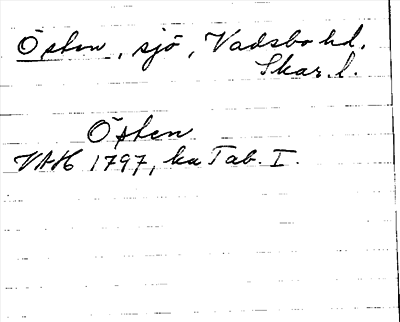 Östen, sjö, Vadsbo hd.
Skar. l.
Östen
VAH 1797, ka Tab. I.